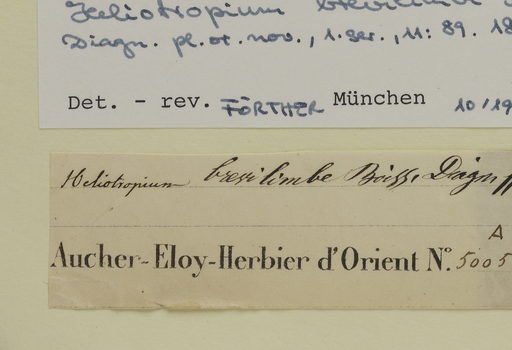 Heliotropium brevilimbe
Diagn. pl. or. nov., 1. ser., 11: 89. 18
Det. - rev. FÖRTHER München 10/19
Heliotropium brevilimbe Boiss. Diagn
A
Aucher-Eloy-Herbier d'Orient N.º 5005